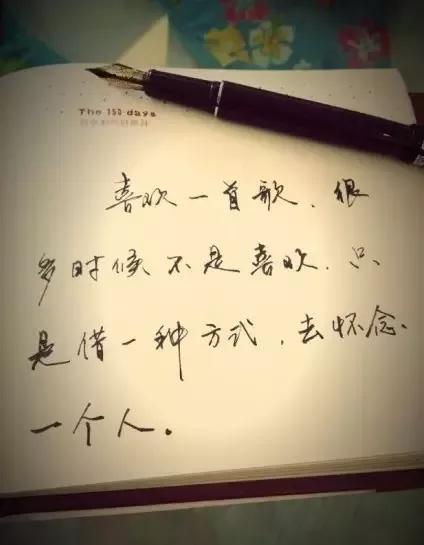 The 150 days
喜欢一首歌，很
多时候不是喜欢，只
是借一种方式，去怀念
一个人。